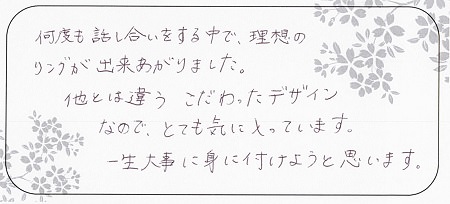 何度も話し合いをする中で、理想の
リングが出来あがりました。
他とは違う こだわったデザイン
なので、とても気に入っています。
一生大事に身に付けようと思います。